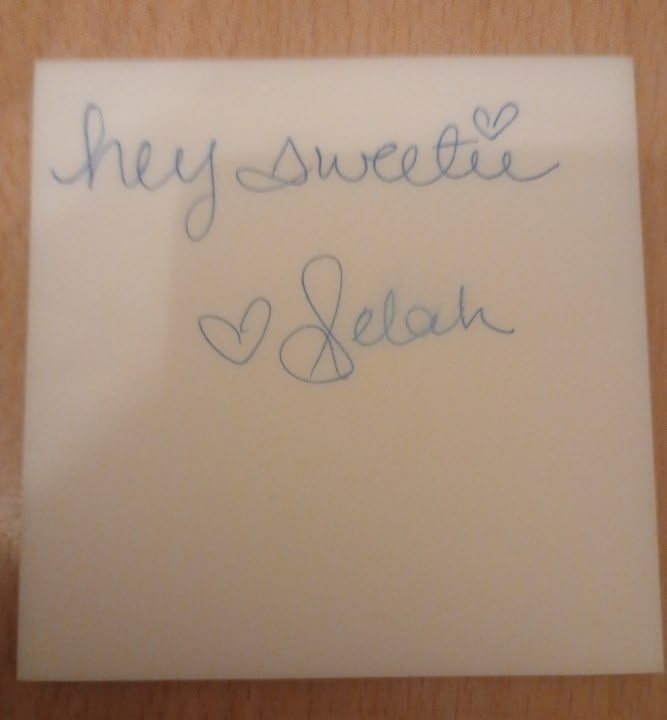 hey sweetie
♡ Selah